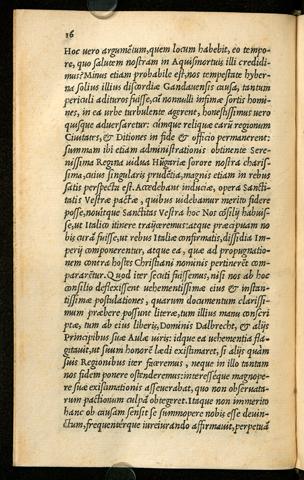 16
Hoc uero argumẽtum, quem locum habebit, eo tempo-
re, quo salutem nostram in Aquisnortuis illi credidi-
mus? Minus etiam probabile est, nos tempestate hyber-
na solius illius discordiæ Gandauensis causa, tantum
periculi adituros fuisse, cū nonnulli infimæ sortis homi-
nes, in ea urbe turbulente agerent, honestissimus uero
quisque aduersaretur: cúmque reliquæ earū regionum
Ciuitates, & Ditiones in fide & officio permanerent:
summam ibi etiam administrationis obtinente Sere-
nissima Regina uidua Hūgariæ sorore nostra charis-
sima, cuius singularis prudẽtia, magnis etiam in rebus
satis perspecta est. Accedebant induciæ, opera Sancti-
tatis Vestræ pactæ, quibus uidebamur merito fidere
posse, nouitque Sanctitas Vestra hoc Nos cōsilij habuis-
se, ut Italico itinere traijceremus: atque præcipuam no
bis curā fuisse, ut rebus Italiæ confirmatis, dissidia Im-
perij componerentur, atque ea, quæ ad propugnatio-
nem contra hostes Christiani nominis pertinerẽt com-
pararẽtur. Quod iter secuti fuissemus, nisi nos ab hoc
consilio deflexissent uehementissimæ eius & instan-
tissimæ postulationes, quarum documentum clarissi-
mum præbere possunt literæ, tum illius manu conscri
ptæ, tum ab eius liberis, Dominis Dalbrecht, & alijs
Principibus suæ Aulæ uiris: idque ea uehementia fla-
gitauit, ut suum honorẽ lædi existimaret, si aliàs quàm
suis Regionibus iter faceremus, neque in illo tantam
nos fidem ponere ostenderemus: interesséque magnope-
re suæ existimationis asseuerabat, quo non obseruata-
rum pactionum culpā obtegeret. Itaque non immerito
hanc ob causam sensit se summopere nobis esse deuin-
ctum, frequentérque iureiurando affirmauit, perpetuā